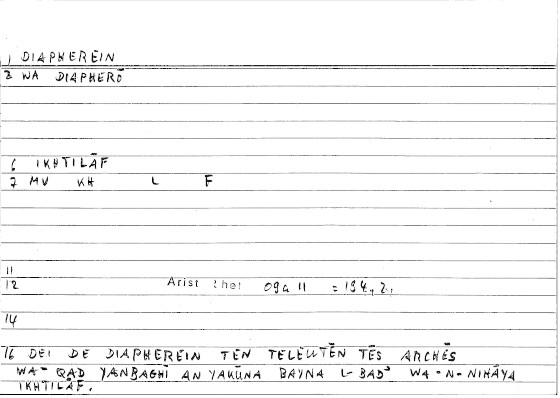 1 DIAPHEREIN
2 WA DIAPHERŌ
6 IKHTILĀF
7 MV KH L F
11
12 Arist Rhet 09a11 = 194,2,
14
16 DEI DE DIAPHEREIN TĒN TELEUTĒN TĒS ARCHĒS
WA-QAD YANBAGHĪ AN YAKŪNA BAYNA L-BADʾ WA-N-NIHĀYA
IKHTILĀF.